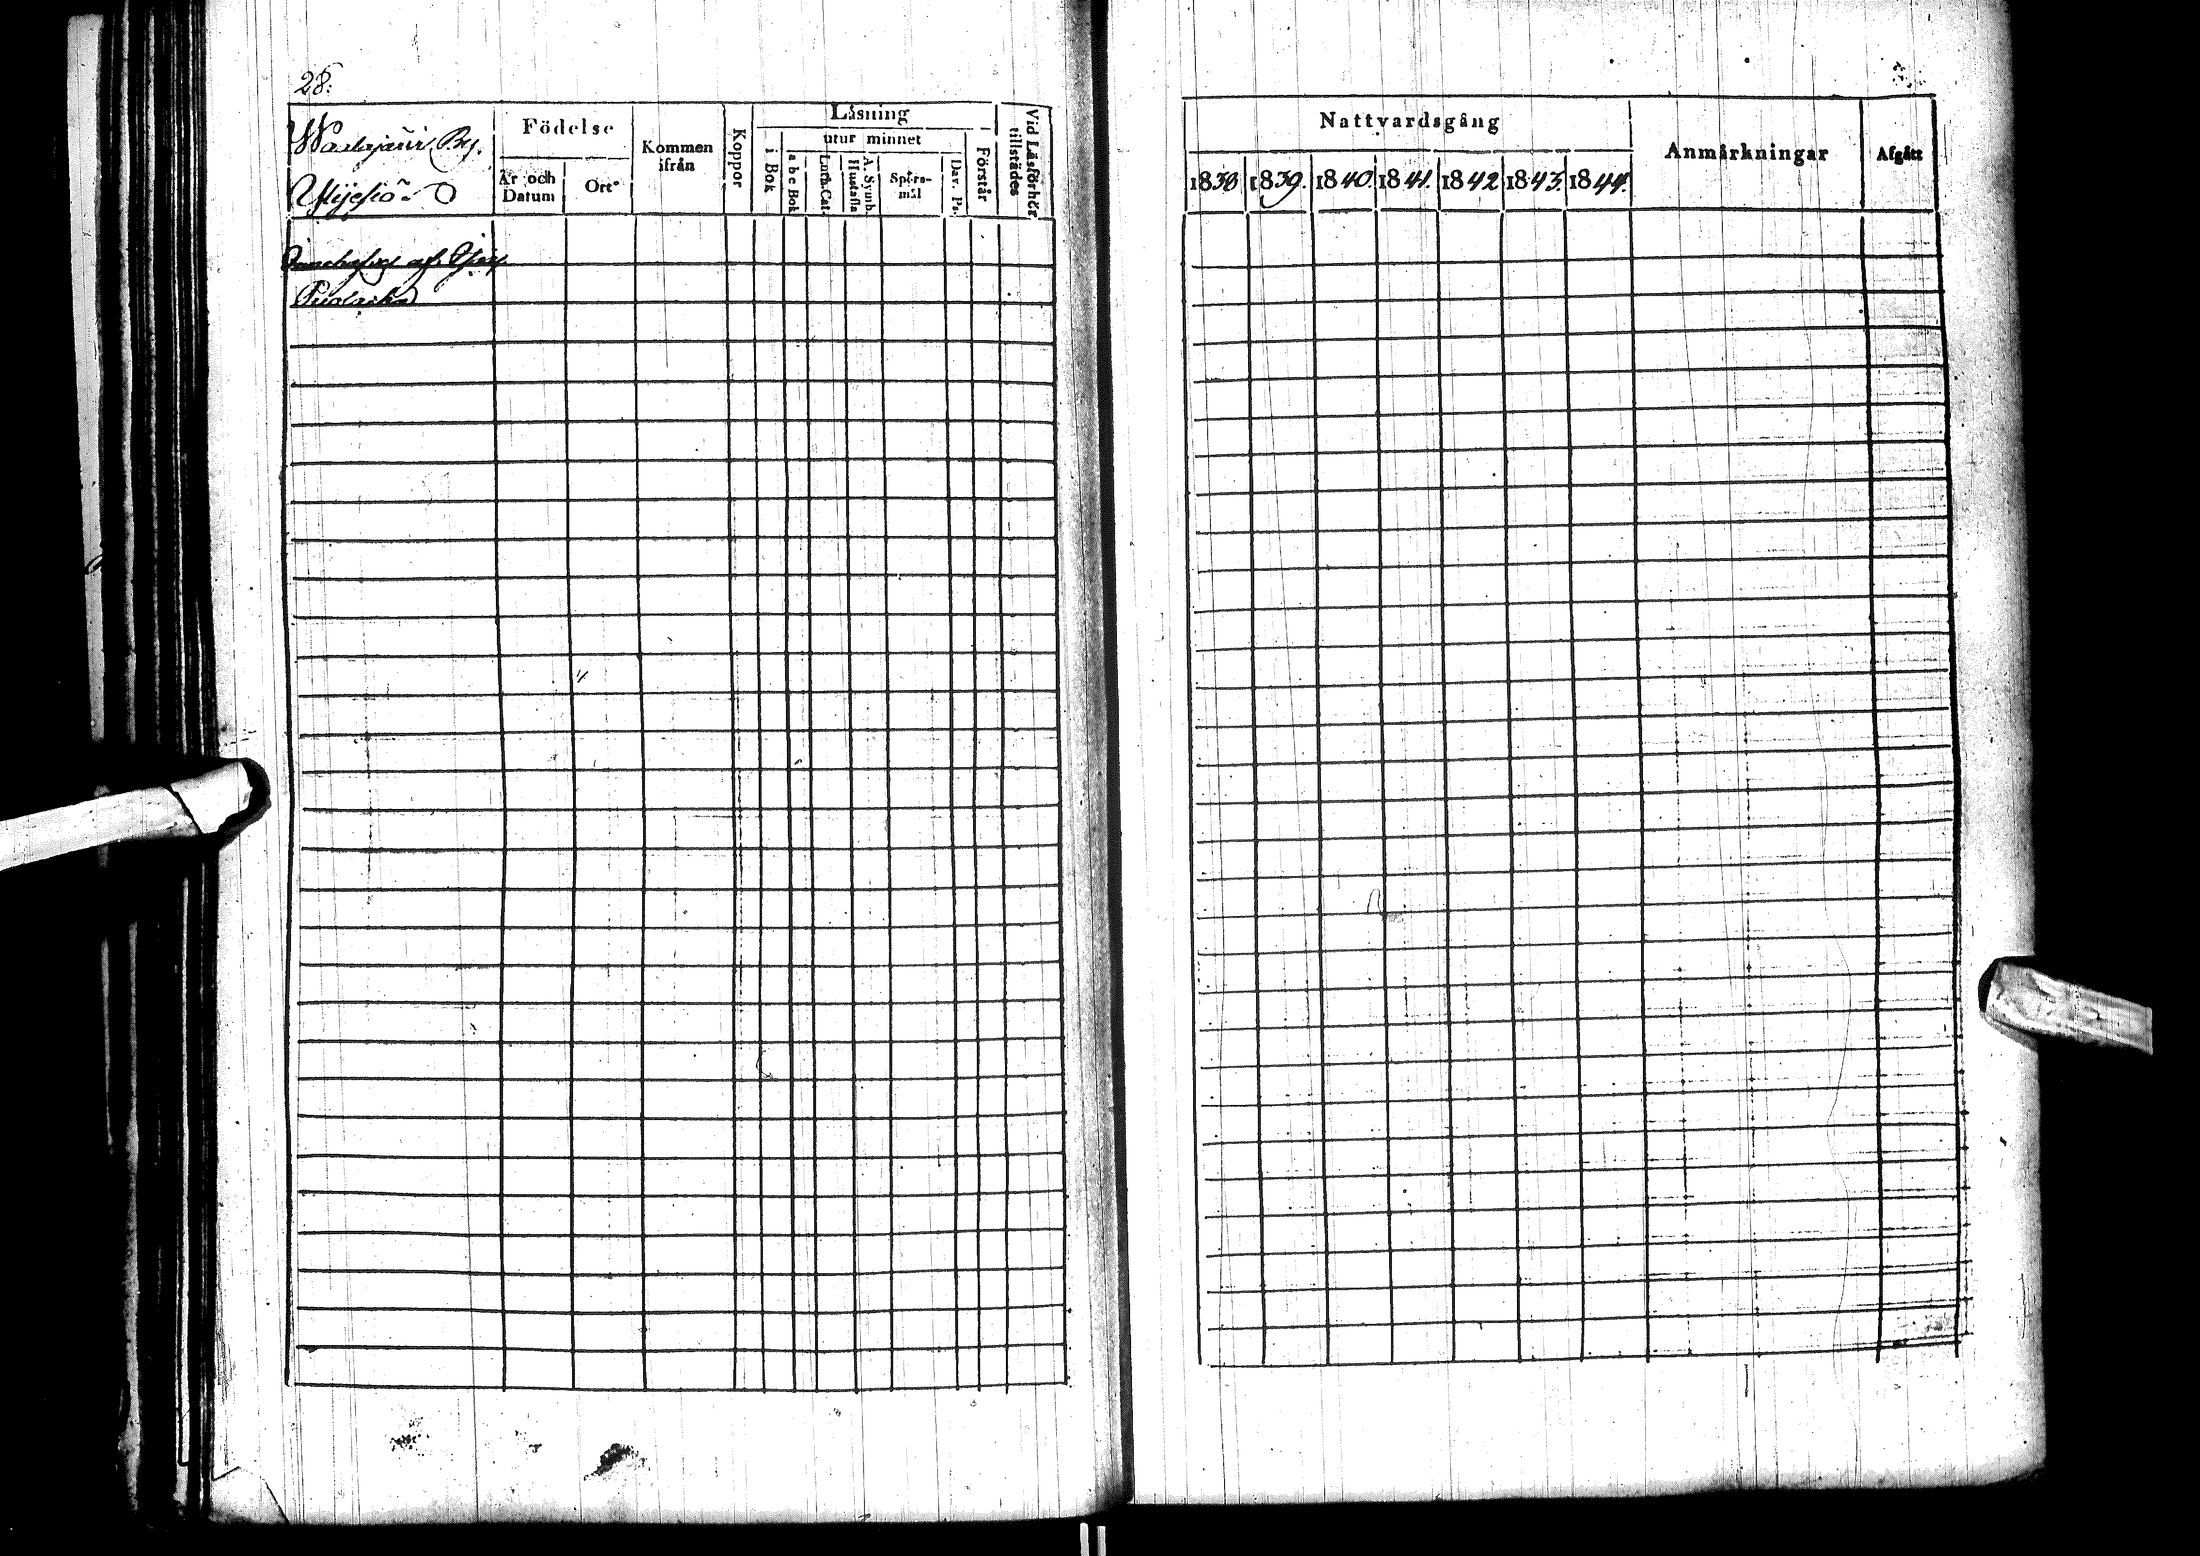 28.
Wastajärvi By.
Födelse
Kommen ifrån
Koppor
Läsning
utur minnet
i Bok
a b c Bok
Luth. Cat.
A. Symb.
Hustafla
Spörs-mål
Dav. Ps.
Förstår
Vid Läsförhör tillstädes
År och Datum
Ort
innehafves af
Nattvardsgång
Anmärkningar
Afgått
1838 1839. 1840. 1841. 1842 1843. 1844.